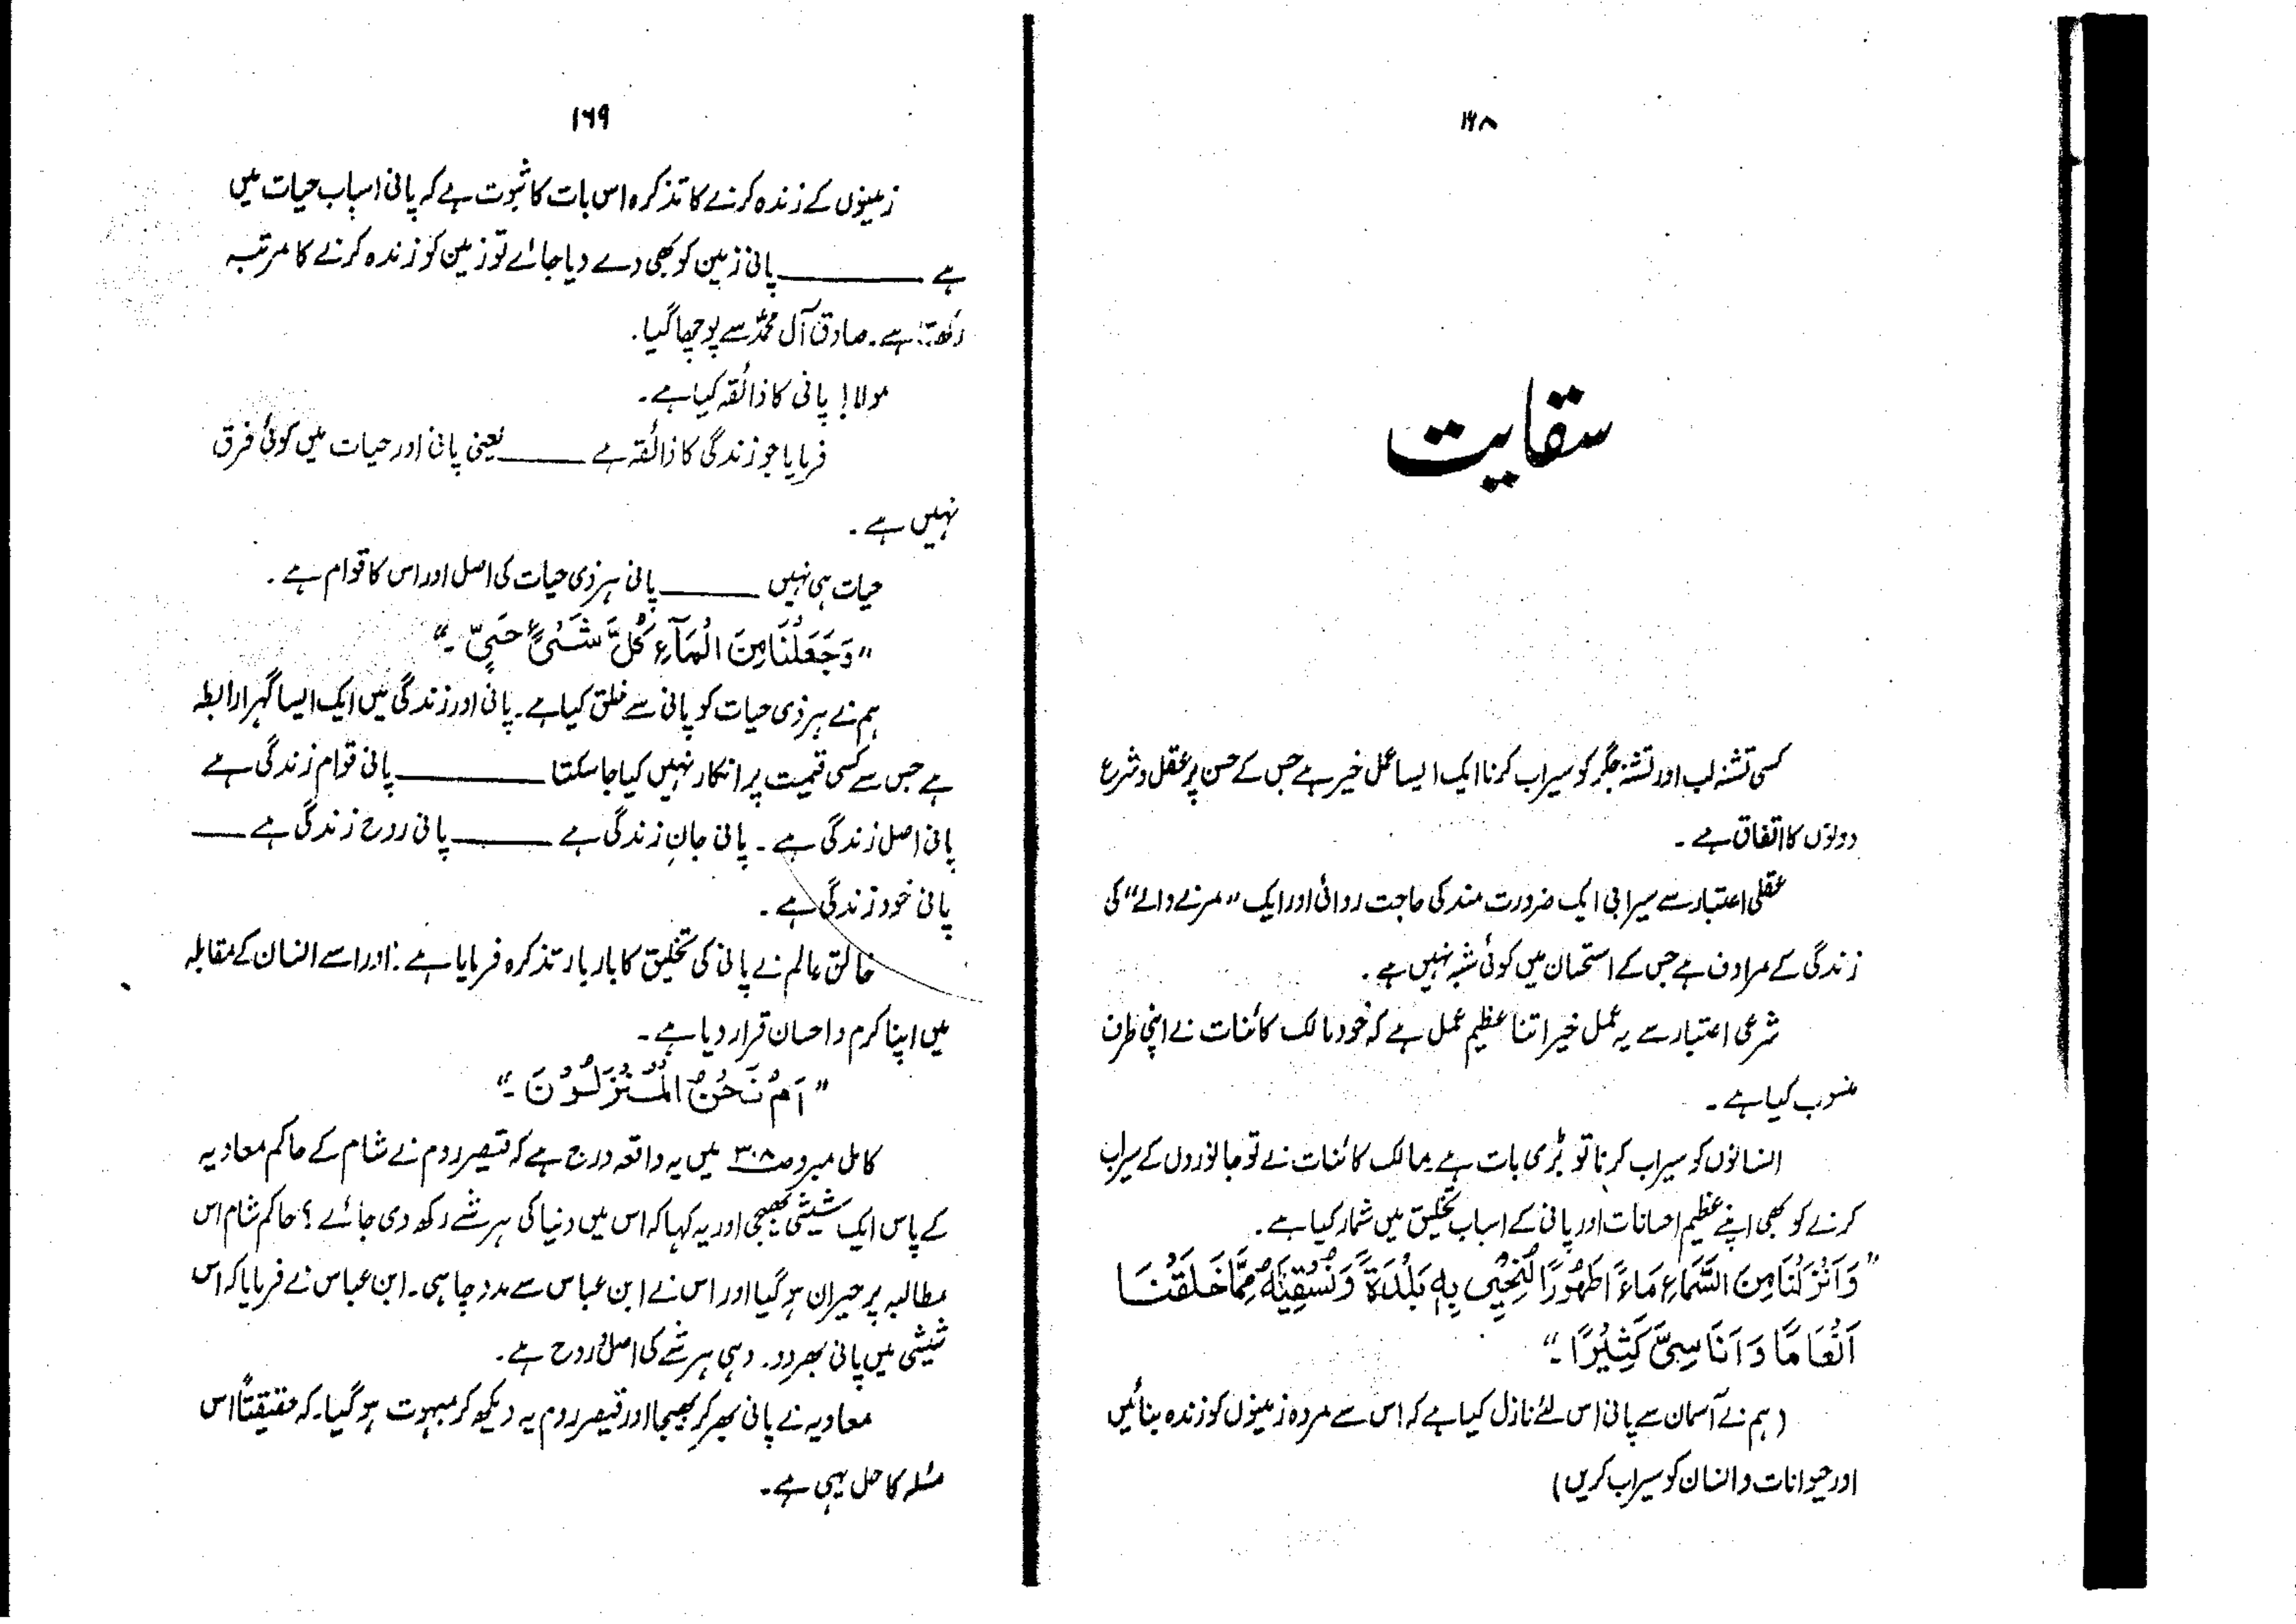 ۱۶۸
سقایت
کسی تشنہ لب اور تشنہ جگر کو سیراب کرنا ایک ایسا عمل خیر ہے جس کے حسن پر عقل و شرع
دونوں کا اتفاق ہے ۔
عقلی اعتبار سے سیرابی ایک ضرورت مند کی حاجت روائی اور ایک "مرنے والے" کی
زندگی کے مرادف ہے جس کے استحسان میں کوئی شبہ نہیں ہے ۔
شرعی اعتبار سے یہ عمل خیر اتنا عظیم عمل ہے کہ خود مالک کائنات نے اپنی طرف
منسوب کیا ہے ۔
انسانوں کو سیراب کرنا تو بڑی بات ہے مالک کائنات نے تو جانوروں کے سیراب
کرنے کو بھی اپنے عظیم احسانات اور پانی کے اسباب تخلیق میں شمار کیا ہے ۔
"وَاَنْزَلْنَا مِنَ السَّمَاءِ مَاءً اطَهُوْرًا لِّنُحْیِیَ بِهٖ بَلْدَةً وَّنُسْقِیَهٗ مِمَّا خَلَقْنَا
اَنْعَامًا وَ اَنَاسِیَّ کَثِیْرًا ۔"
(ہم نے آسمان سے پانی اس لئے نازل کیا ہے کہ اس سے مردہ زمینوں کو زندہ بنائیں
اور حیوانات و انسان کو سیراب کریں)
۱۶۹
زمینوں کے زندہ کرنے کا تذکرہ اس بات کا ثبوت ہے کہ پانی اسباب حیات میں
ہے ______ پانی زمین کو بھی دے دیا جائے تو زمین کو زندہ کرنے کا مرتبہ
رکھتا ہے ۔ صادق آل محمدؐ سے پوچھا گیا ۔
مولا! پانی کا ذائقہ کیا ہے ۔
فرمایا جو زندگی کا ذائقہ ہے ____ یعنی پانی اور حیات میں کوئی فرق
نہیں ہے ۔
حیات ہی نہیں ____ پانی ہر ذی حیات کی اصل اور اس کا قوام ہے ۔
"وَجَعَلْنَا مِنَ الْمَآءِ کُلَّ شَیْءٍ حَیٍّ ۔"
ہم نے ہر ذی حیات کو پانی سے خلق کیا ہے ۔ پانی اور زندگی میں ایک ایسا گہرا رابطہ
ہے جس سے کسی قیمت پر انکار نہیں کیا جا سکتا ______ پانی قوام زندگی ہے
پانی اصل زندگی ہے ۔ پانی جانِ زندگی ہے ____ پانی روح زندگی ہے __
پانی خود زندگی ہے ۔
خالق عالم نے پانی کی تخلیق کا بار بار تذکرہ فرمایا ہے ۔ اور اسے انسان کے مقابلہ
میں اپنا کرم و احسان قرار دیا ہے ۔
"اَمْ نَحْنُ الْمُنْزِلُوْنَ ۔"
کامل مبرد ص۳۰۸ میں یہ واقعہ درج ہے کہ قیصر روم نے شام کے حاکم معاویہ
کے پاس ایک شیشی بھیجی اور یہ کہا کہ اس میں دنیا کی ہر شے رکھ دی جائے ؟ حاکم شام اس
مطالبہ پر حیران ہو گیا اور اس نے ابن عباس سے مدد چاہی ۔ ابن عباس نے فرمایا کہ اس
شیشی میں پانی بھر دو ۔ وہی ہر شے کی اصل و روح ہے ۔
معاویہ نے پانی بھر کر بھیجا اور قیصر روم یہ دیکھ کر مبہوت ہو گیا ۔ کہ حقیقتاً اس
مسئلہ کا حل یہی ہے ۔